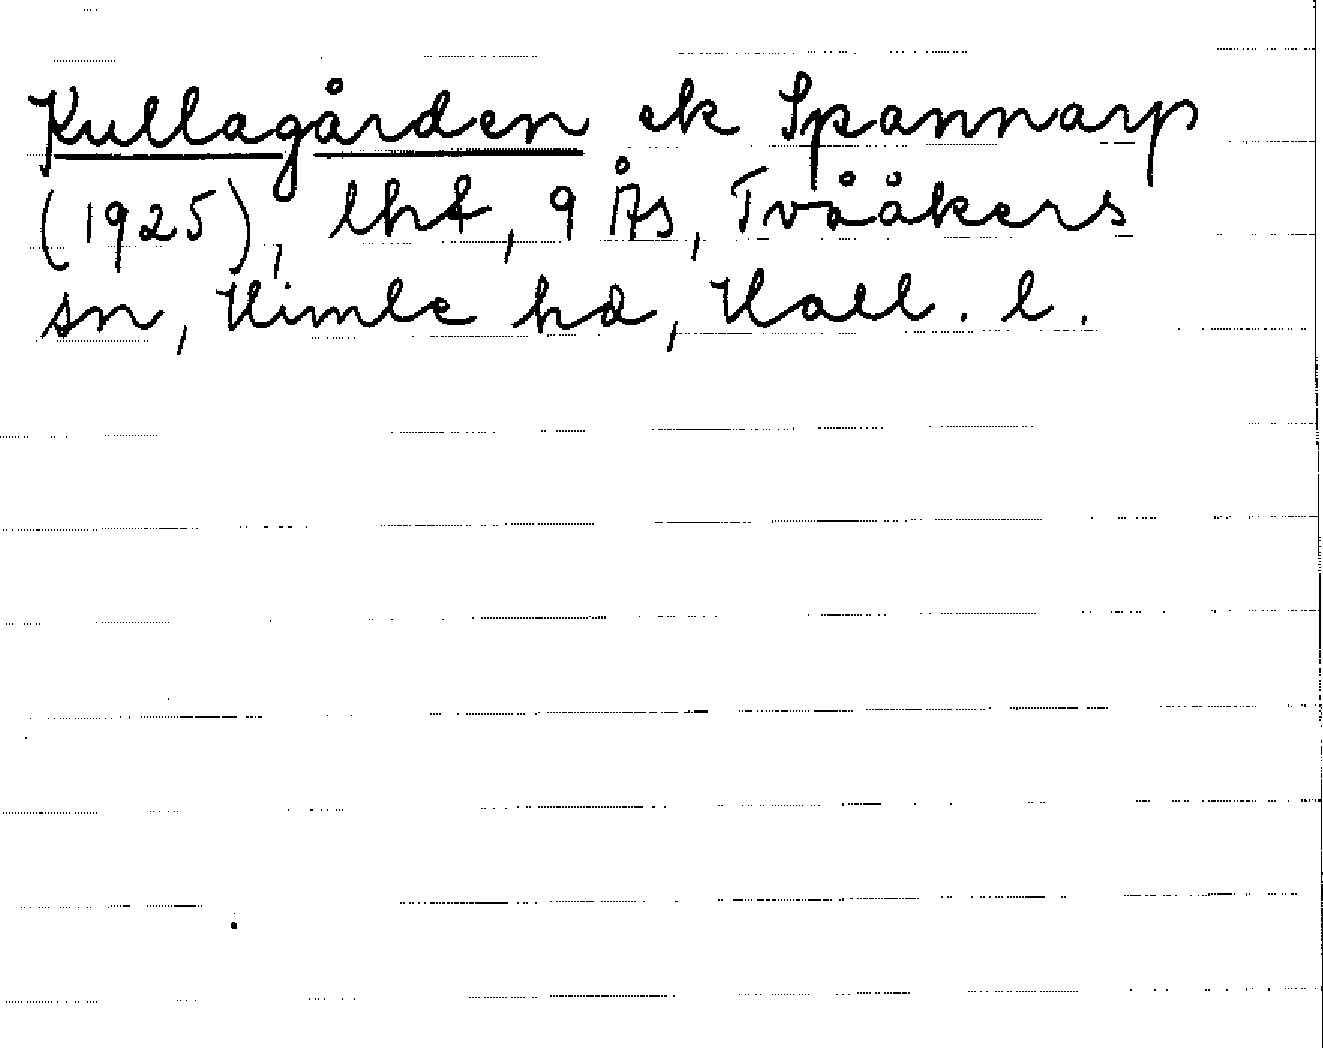 Kullagården ek Spannarp
(1925), lht, 9 Ås, Tvååkers
sn, Himle hd, Hall. l.